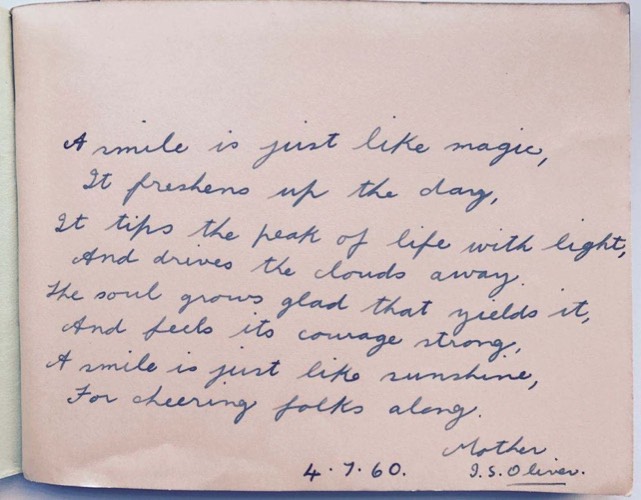 A smile is just like magic,
It freshens up the day,
It tips the peak of life with light,
And drives the clouds away.
The soul grows glad that yields it,
And feels its courage strong,
A smile is just like sunshine,
For cheering folks along.
Mother
4.7.60. I.S. Oliver.